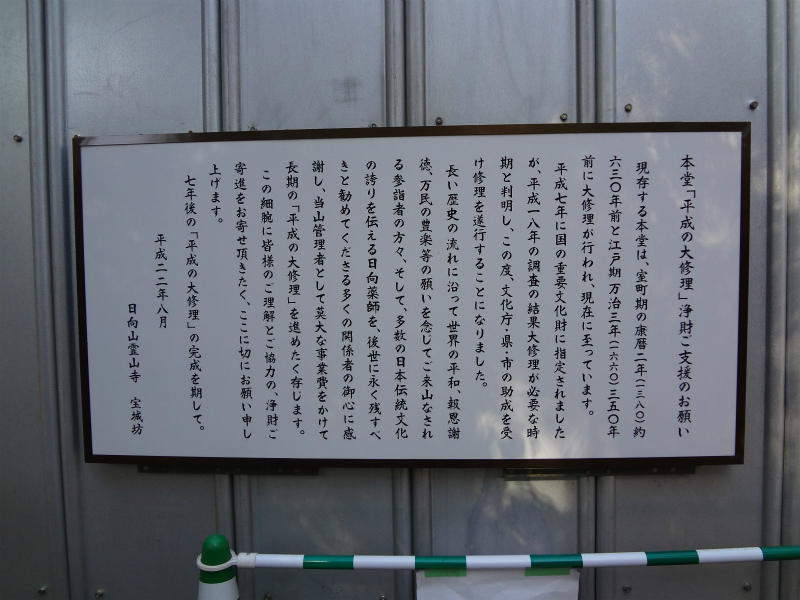 本堂「平成の大修理」浄財ご支援のお願い
現存する本堂は、室町期の康暦二年(一三八〇)約
六三〇年前と江戸期万治三年(一六六〇)三五〇年
前に大修理が行われ、現在に至っています。
平成七年に国の重要文化財に指定されました
が、平成一八年の調査の結果大修理が必要な時
期と判明し、この度、文化庁・県・市の助成を受
け修理を遂行することになりました。
長い歴史の流れに沿って世界の平和、報恩謝
徳、万民の豊楽等の願いを念じてご来山なされ
る参詣者の方々、そして、多数の日本伝統文化
の誇りを伝える日向薬師を、後世に永く残すべ
きと勧めてくださる多くの関係者の御心に感
謝し、当山管理者として莫大な事業費をかけて
長期の「平成の大修理」を進めたく存じます。
この細腕に皆様のご理解とご協力の、浄財ご
寄進をお寄せ頂きたく、ここに切にお願い申し
上げます。
七年後の「平成の大修理」の完成を期して。
平成二二年八月
日向山霊山寺 宝城坊